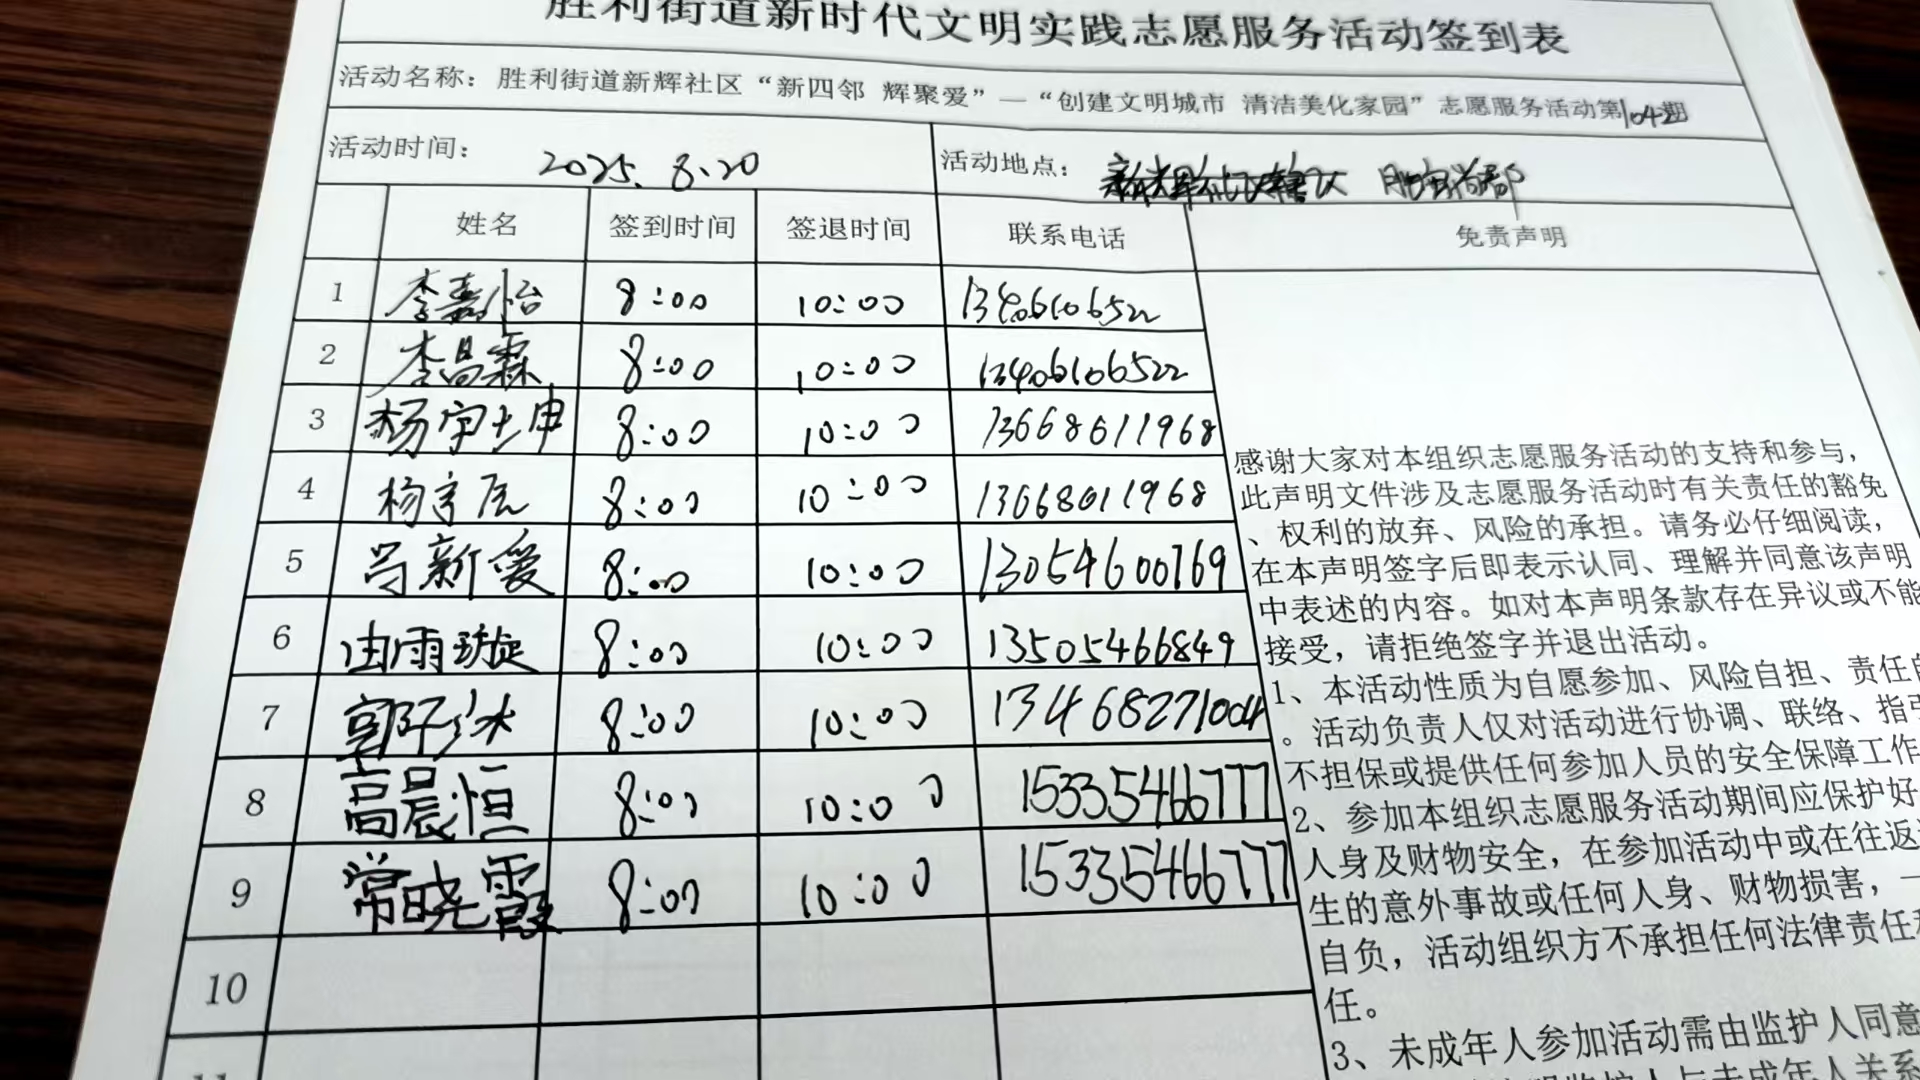 胜利街道新时代文明实践志愿服务活动签到表
活动名称：胜利街道新辉社区“新四邻 辉聚爱”—“创建文明城市 清洁美化家园”志愿服务活动第104期
活动时间： 2025.8.20 活动地点：
姓名 签到时间 签退时间 联系电话 免责声明
1 李嘉怡 8:00 10:00 13406106522
2 李昌霖 8:00 10:00 13406106522
3 8:00 10:00 13668611968
4 8:00 10:00 13668611968
5 吕新爱 8:00 10:00 13054600769
6 由雨璇 8:00 10:00 13505466849
7 8:00 10:00 13468271004
8 高晨恒 8:00 10:00 15335466777
9 常晓霞 8:00 10:00 15335466777
10
11
感谢大家对本组织志愿服务活动的支持和参与，
此声明文件涉及志愿服务活动时有关责任的豁免
、权利的放弃、风险的承担。请务必仔细阅读，
在本声明签字后即表示认同、理解并同意该声明
中表述的内容。如对本声明条款存在异议或不能
接受，请拒绝签字并退出活动。
1、本活动性质为自愿参加、风险自担、责任自
。活动负责人仅对活动进行协调、联络、指引
不担保或提供任何参加人员的安全保障工作
2、参加本组织志愿服务活动期间应保护好
人身及财物安全，在参加活动中或在往返
生的意外事故或任何人身、财物损害，一
自负，活动组织方不承担任何法律责任和
任。
3、未成年人参加活动需由监护人同意